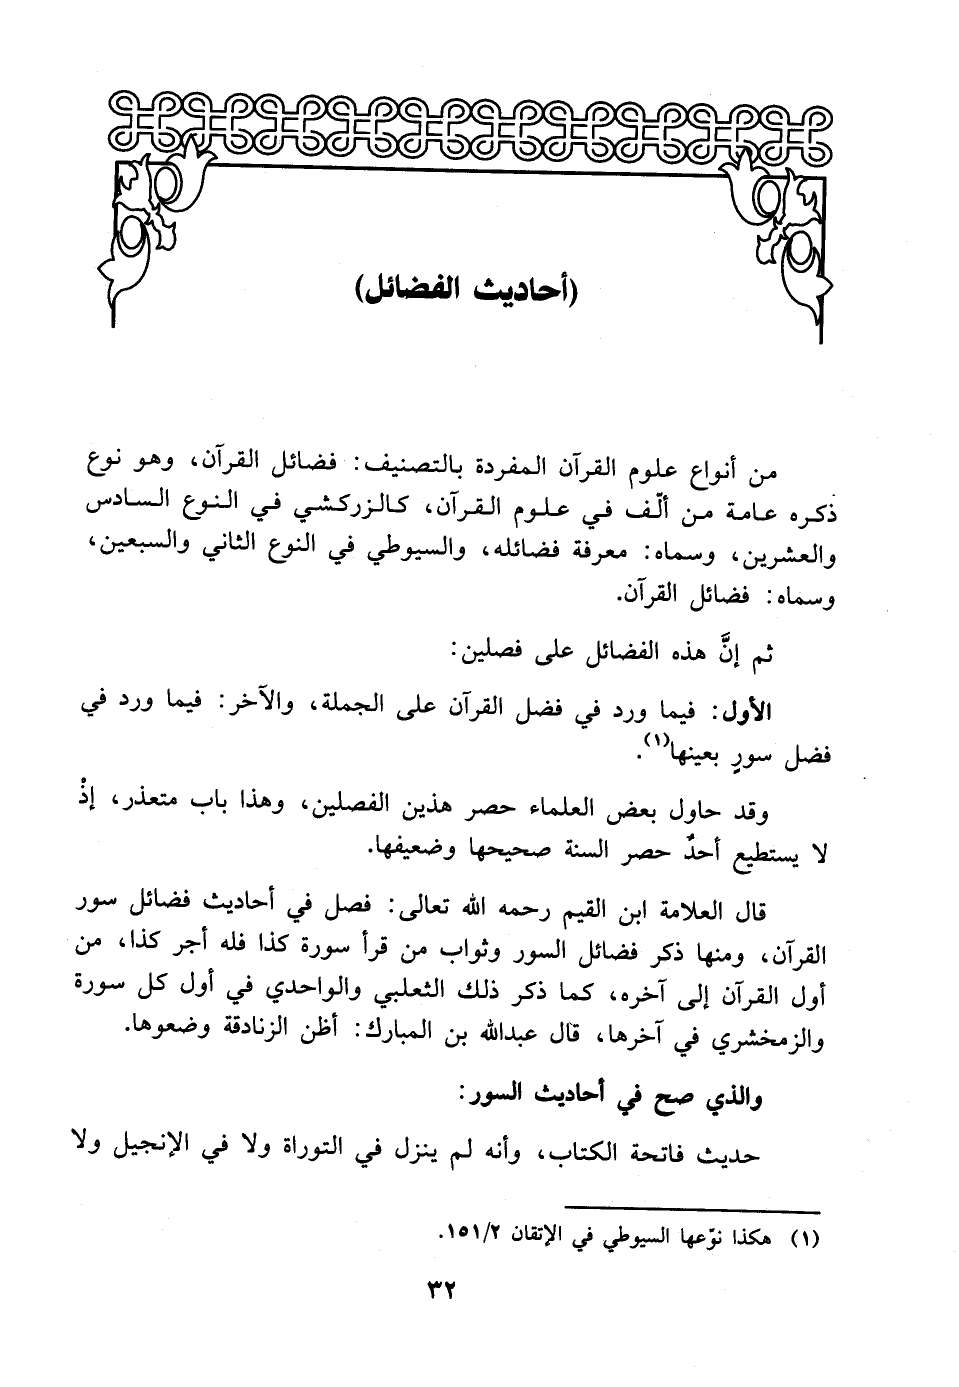 (أحاديث الفضائل)
من أنواع علوم القرآن المفردة بالتصنيف: فضائل القرآن، وهو نوع
ذكره عامة من ألّف في علوم القرآن، كالزركشي في النوع السادس
والعشرين، وسماه: معرفة فضائله، والسيوطي في النوع الثاني والسبعين،
وسماه: فضائل القرآن.
ثم إنَّ هذه الفضائل على فصلين:
الأول: فيما ورد في فضل القرآن على الجملة، والآخر: فيما ورد في
فضل سورٍ بعينها(١).
وقد حاول بعض العلماء حصر هذين الفصلين، وهذا باب متعذر، إذْ
لا يستطيع أحدٌ حصر السنة صحيحها وضعيفها.
قال العلامة ابن القيم رحمه الله تعالى: فصل في أحاديث فضائل سور
القرآن، ومنها ذكر فضائل السور وثواب من قرأ سورة كذا فله أجر كذا، من
أول القرآن إلى آخره، كما ذكر ذلك الثعلبي والواحدي في أول كل سورة
والزمخشري في آخرها، قال عبدالله بن المبارك: أظن الزنادقة وضعوها.
والذي صح في أحاديث السور:
حديث فاتحة الكتاب، وأنه لم ينزل في التوراة ولا في الإنجيل ولا
(١) هكذا نوّعها السيوطي في الإتقان ١٥١/٢.
٣٢